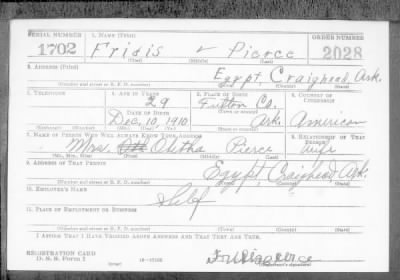 SERIAL NUMBER 1. NAME (Print) ORDER NUMBER
1702 Fridis Pierce 2028
(First) (Middle) (Last)
2. ADDRESS (Print)
Egypt Craighead Ark.
(Number and street or R. F. D. number) (Town) (County) (State)
3. TELEPHONE 4. AGE IN YEARS 5. PLACE OF BIRTH 6. COUNTRY OF CITIZENSHIP
29 Fulton Co.
DATE OF BIRTH (Town or county)
Dec, 10, 1910 Ark. American
(Exchange) (Number) (Mo.) (Day) (Yr.) (State or country)
7. NAME OF PERSON WHO WILL ALWAYS KNOW YOUR ADDRESS 8. RELATIONSHIP OF THAT PERSON
Mrs. Pierce wife
(Mr., Mrs., Miss) (First) (Middle) (Last)
9. ADDRESS OF THAT PERSON
Egypt, Craighead Ark.
(Number and street or R. F. D. number) (Town) (County) (State)
10. EMPLOYER'S NAME
Self
11. PLACE OF EMPLOYMENT OR BUSINESS
(Number and street or R. F. D. number) (Town) (County) (State)
I AFFIRM THAT I HAVE VERIFIED ABOVE ANSWERS AND THAT THEY ARE TRUE.
REGISTRATION CARD
D. S. S. Form 1 (over)